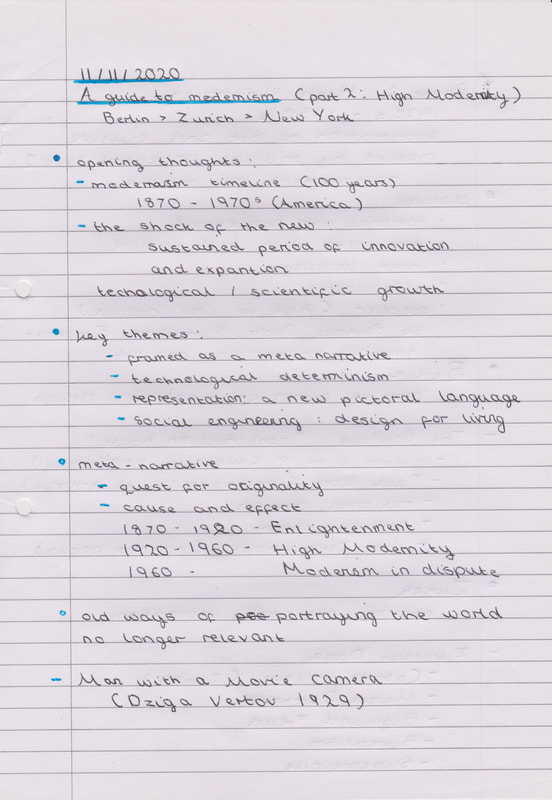 11/11/2020
A guide to modernism (part 2: High Modernity)
Berlin > Zurich > New York
• opening thoughts:
- modernism timeline (100 years)
1870 - 1970s (America)
- the shock of the new:
sustained period of innovation
and expantion
techological / scientific growth
• key themes:
- framed as a meta narrative
- technological determinism
- representation: a new pictoral language
- social engineering: design for living
• meta-narrative
- quest for originality
- cause and effect
1870 - 1920 - Enlightenment
1920 - 1960 - High Modernity
1960 - Moderism in dispute
• old ways of portraying the world
no longer relevant
- Man with a Movie Camera
(Dziga Vertov 1929)